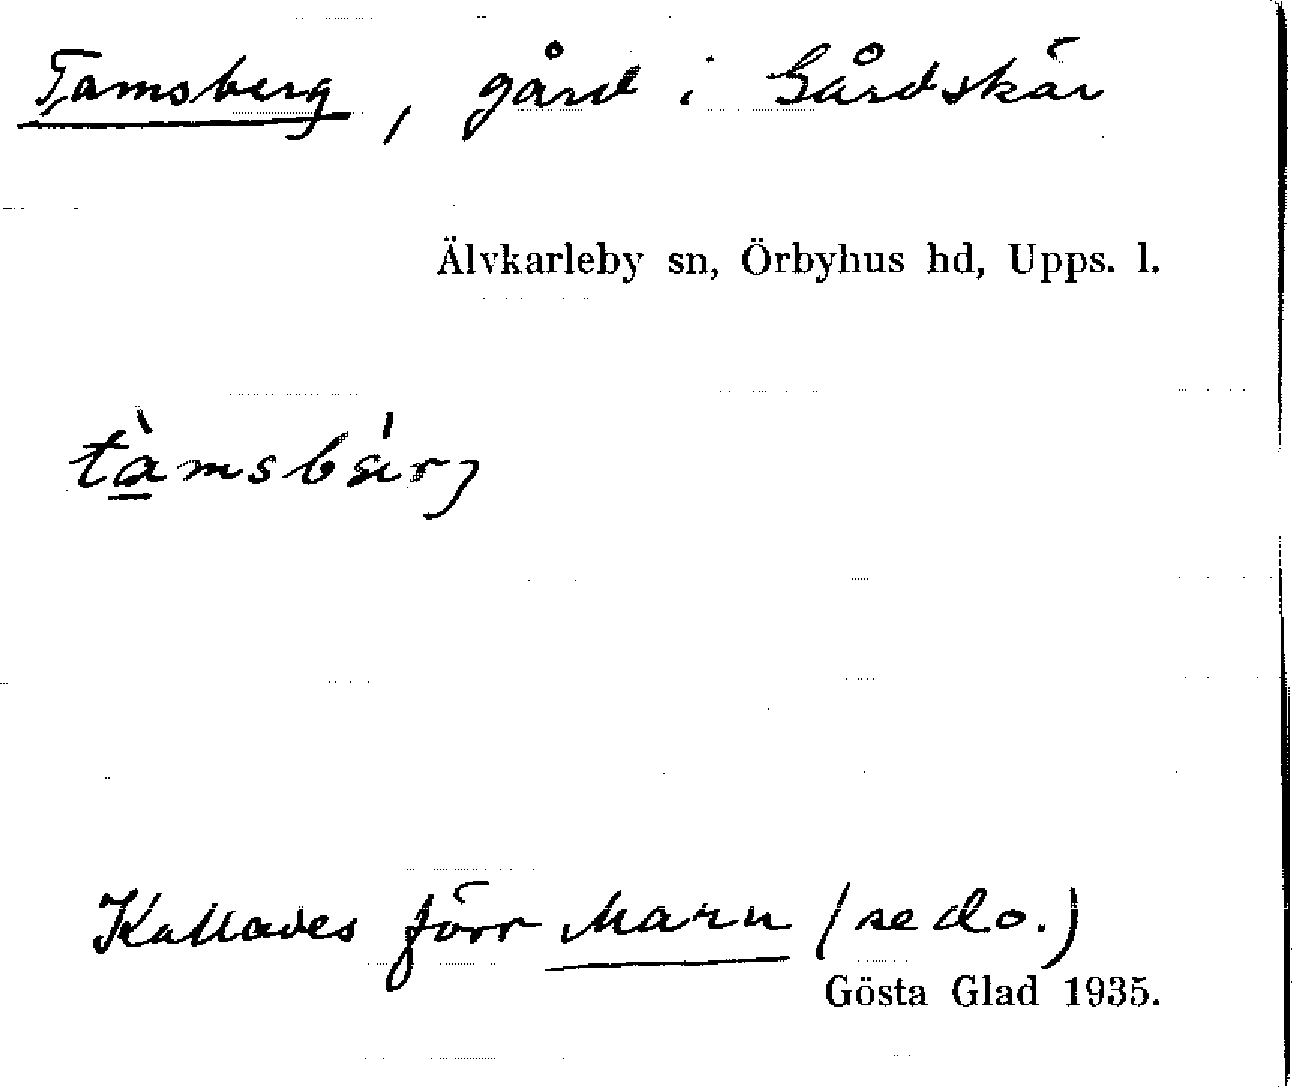 Tamsberg, gård i Gårdskär
Älvkarleby sn, Örbyhus hd, Upps. l.
tàmsbärj
Kallades förr Marn (se d.o.)
Gösta Glad 1935.